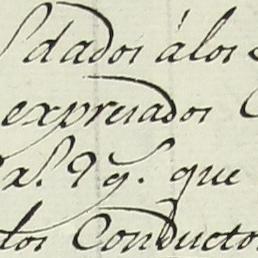 dados á los
expresados
que
los Conducto